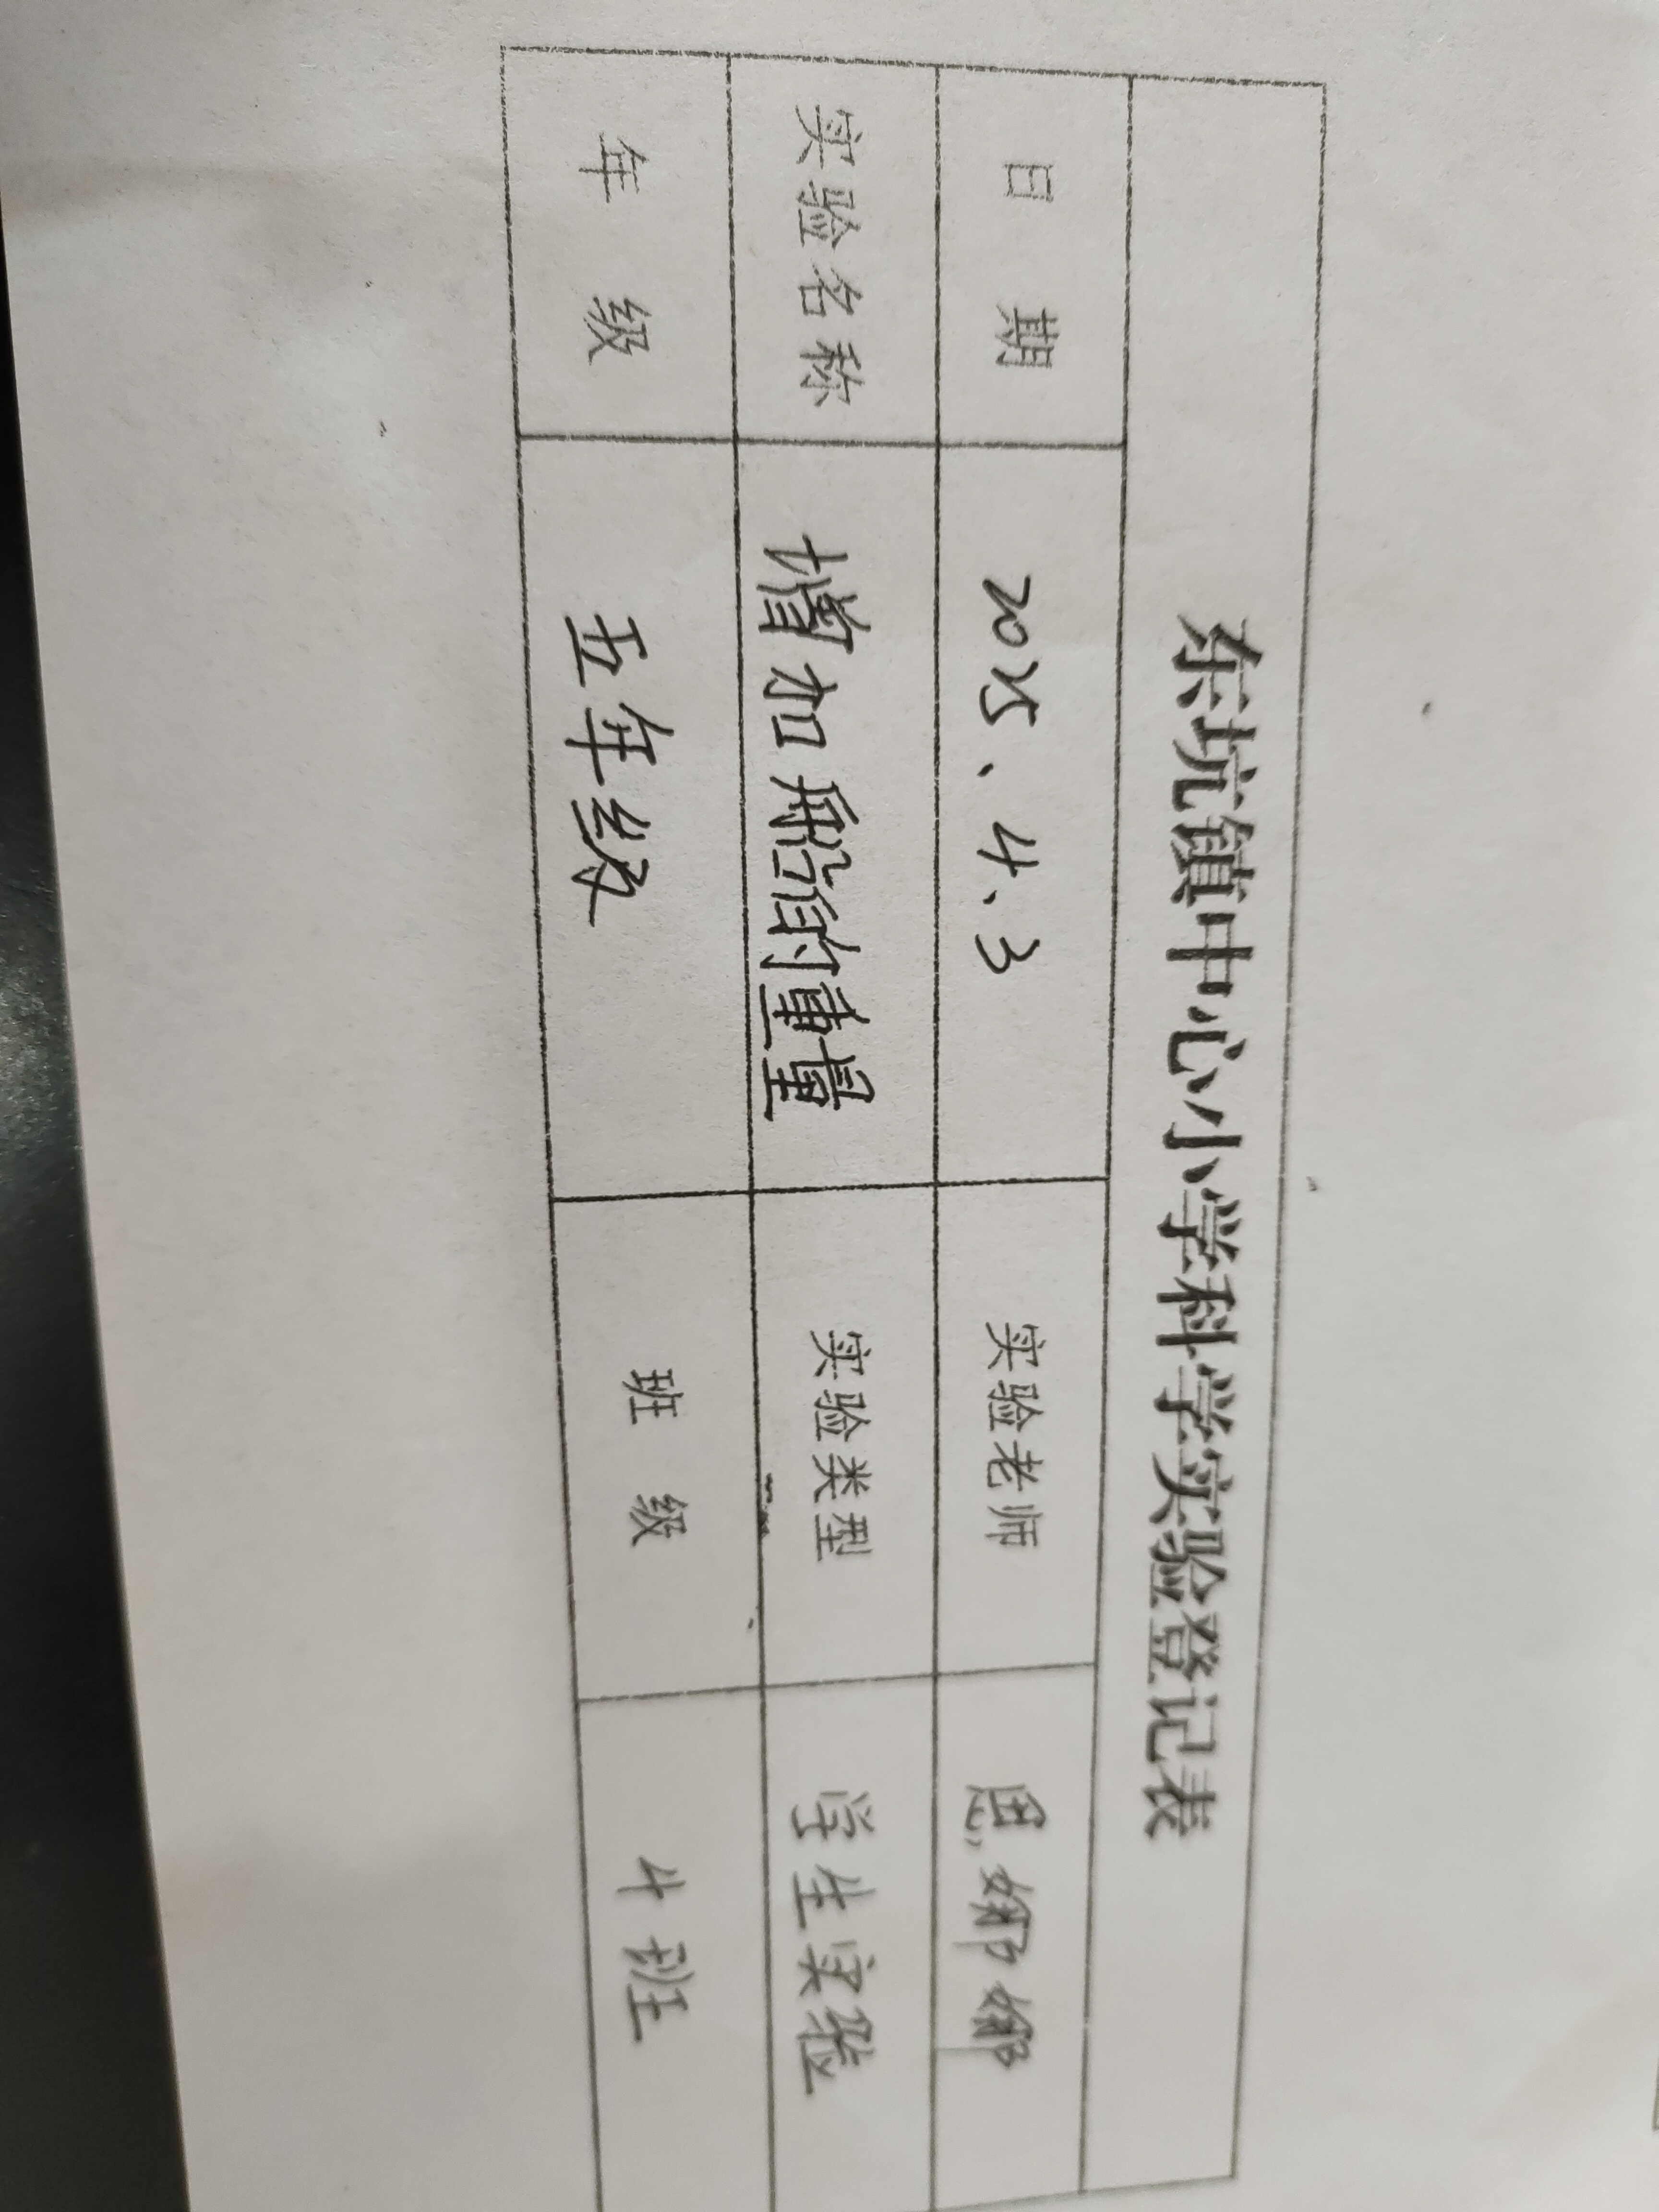 东坑镇中心小学科学实验登记表
日期 2025、4、3 实验老师 思娜娜
实验名称 增加船的重量 实验类型 学生实验
年级 五年级 班级 4班